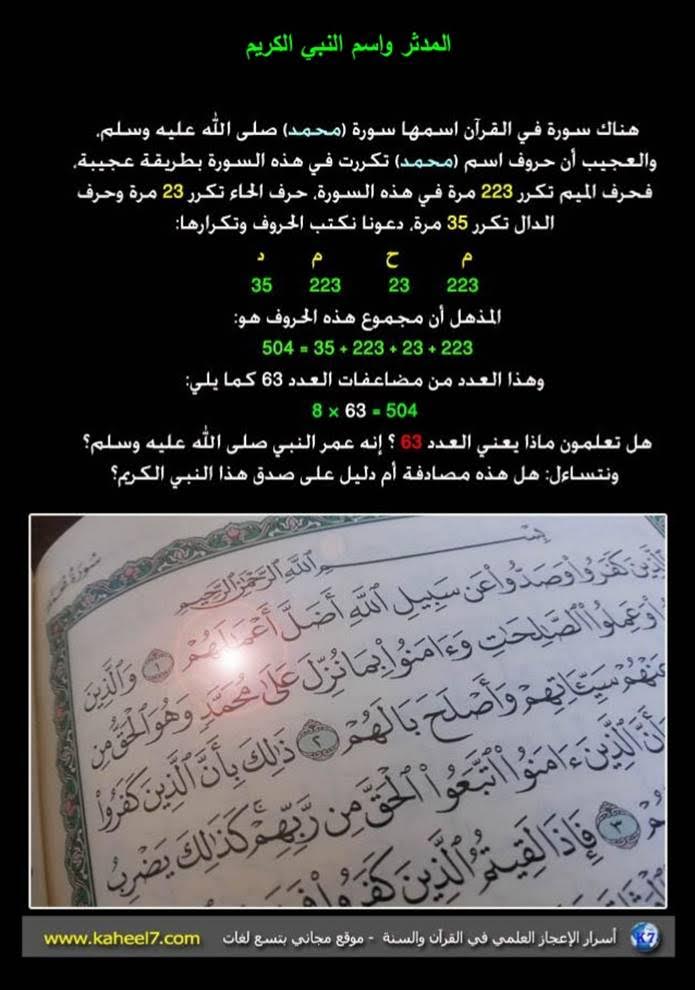 المدثر واسم النبي الكريم
هناك سورة في القرآن اسمها سورة (محمد) صلى الله عليه وسلم،
والعجيب أن حروف اسم (محمد) تكررت في هذه السورة بطريقة عجيبة،
فحرف الميم تكرر 223 مرة في هذه السورة، حرف الحاء تكرر 23 مرة وحرف
الدال تكرر 35 مرة، دعونا نكتب الحروف وتكرارها:
م ح م د
223 23 223 35
المذهل أن مجموع هذه الحروف هو:
504 = 35 + 223 + 23 + 223
وهذا العدد من مضاعفات العدد 63 كما يلي:
8 × 63 = 504
هل تعلمون ماذا يعني العدد 63 ؟ إنه عمر النبي صلى الله عليه وسلم؟
ونتساءل: هل هذه مصادفة أم دليل على صدق هذا النبي الكريم؟
بِسْمِ اللَّهِ الرَّحْمَٰنِ الرَّحِيمِ
الَّذِينَ كَفَرُوا وَصَدُّوا عَن سَبِيلِ اللَّهِ أَضَلَّ أَعْمَالَهُمْ ١ وَالَّذِينَ
وَعَمِلُوا الصَّالِحَاتِ وَءَامَنُوا بِمَا نُزِّلَ عَلَىٰ مُحَمَّدٍ وَهُوَ الْحَقُّ مِن
عَنْهُمْ سَيِّئَاتِهِمْ وَأَصْلَحَ بَالَهُمْ ٢ ذَٰلِكَ بِأَنَّ الَّذِينَ كَفَرُوا
وَأَنَّ الَّذِينَ ءَامَنُوا اتَّبَعُوا الْحَقَّ مِن رَّبِّهِمْ كَذَٰلِكَ يَضْرِبُ
٣ فَإِذَا لَقِيتُمُ الَّذِينَ كَفَرُوا
أسرار الإعجاز العلمي في القرآن والسنة - موقع مجاني بتسع لغات www.kaheel7.com
K7